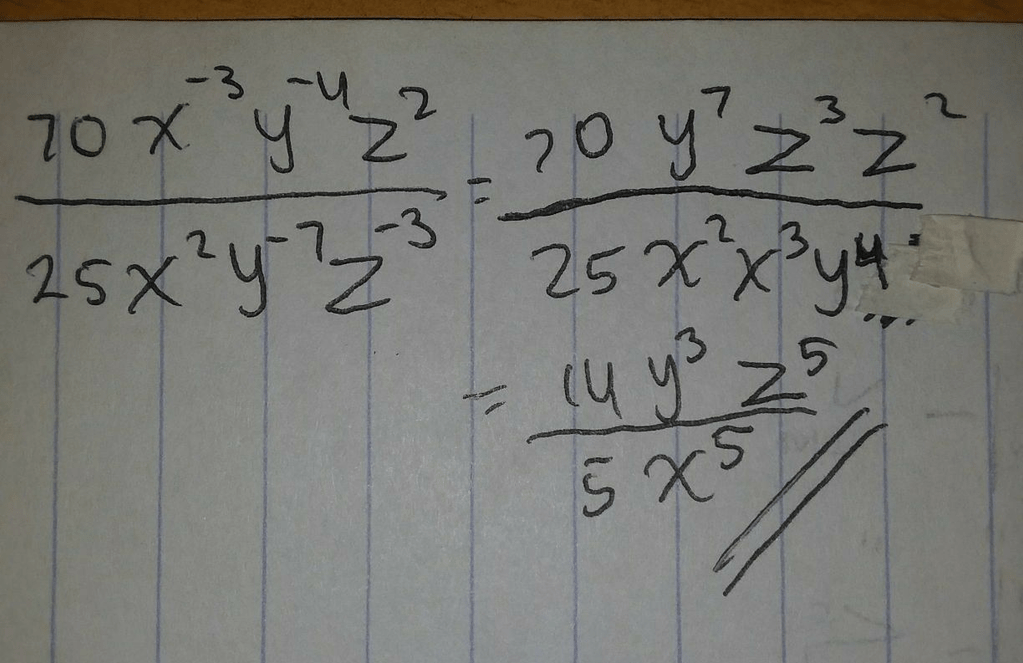 70 x⁻³ y⁻⁴ z² / 25 x² y⁻⁷ z⁻³ = 70 y⁷ z³ z² / 25 x² x³ y⁴
= 14 y³ z⁵ / 5 x⁵